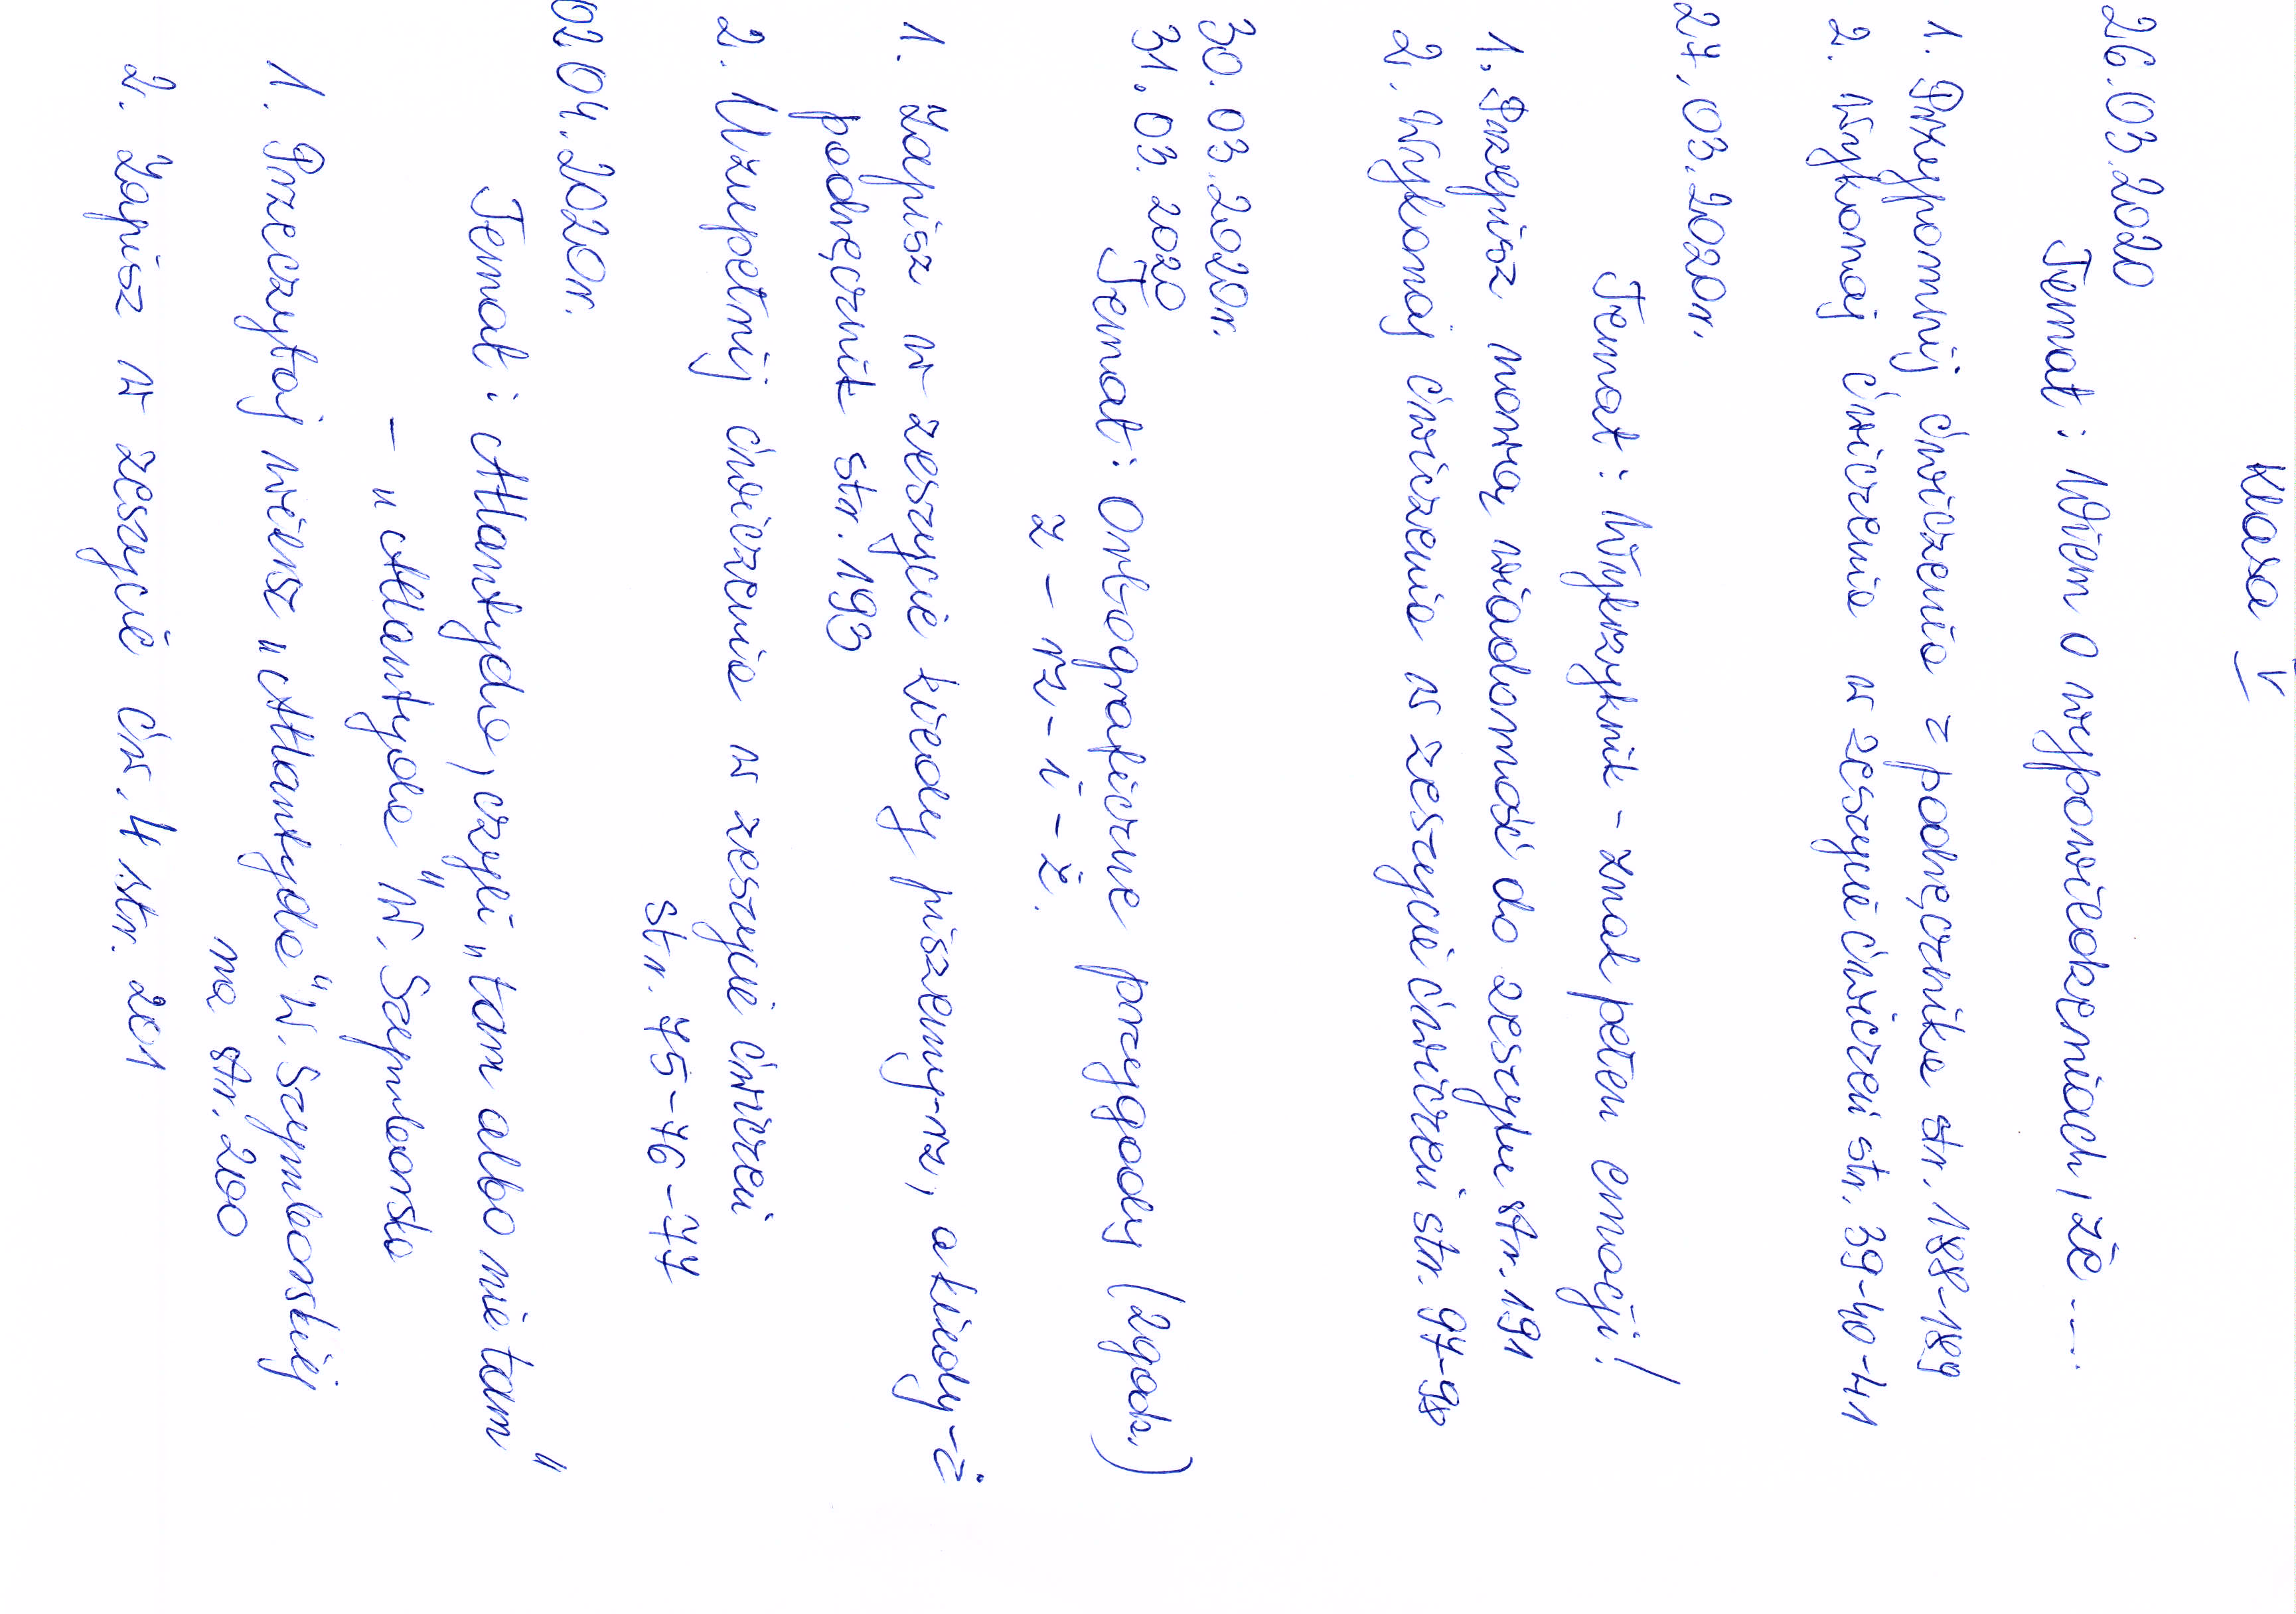 Klasa V
26.03.2020
Temat: Wiem o wypowiedzeniach, że....
1. Przypomnij ćwiczenia z podręcznika str. 188-189
2. Wykonaj ćwiczenia w zeszycie ćwiczeń str. 39-40-41
27.03.2020r.
Temat: Wykrzyknik - znak pełen emocji!
1. Przepisz nową wiadomość do zeszytu str. 191
2. Wykonaj ćwiczenia w zeszycie ćwiczeń str. 97-98
30.03.2020r.
31.03.2020
Temat: Ortograficzne przygody (2godz.)
z - rz - i - ż.
1. Zapisz w zeszycie kiedy piszemy-rz, a kiedy-ż
podręcznik str. 193
2. Uzupełnij ćwiczenia w zeszycie ćwiczeń
str. 75-76-77
02.04.2020r.
Temat: Atlantyda, czyli „tam albo nie tam"
- „Atlantyda" W. Szymborska
1. Przeczytaj wiersz „Atlantyda" W. Szymborskiej
na str. 200
2. Zapisz w zeszycie ćw. 4 str. 201